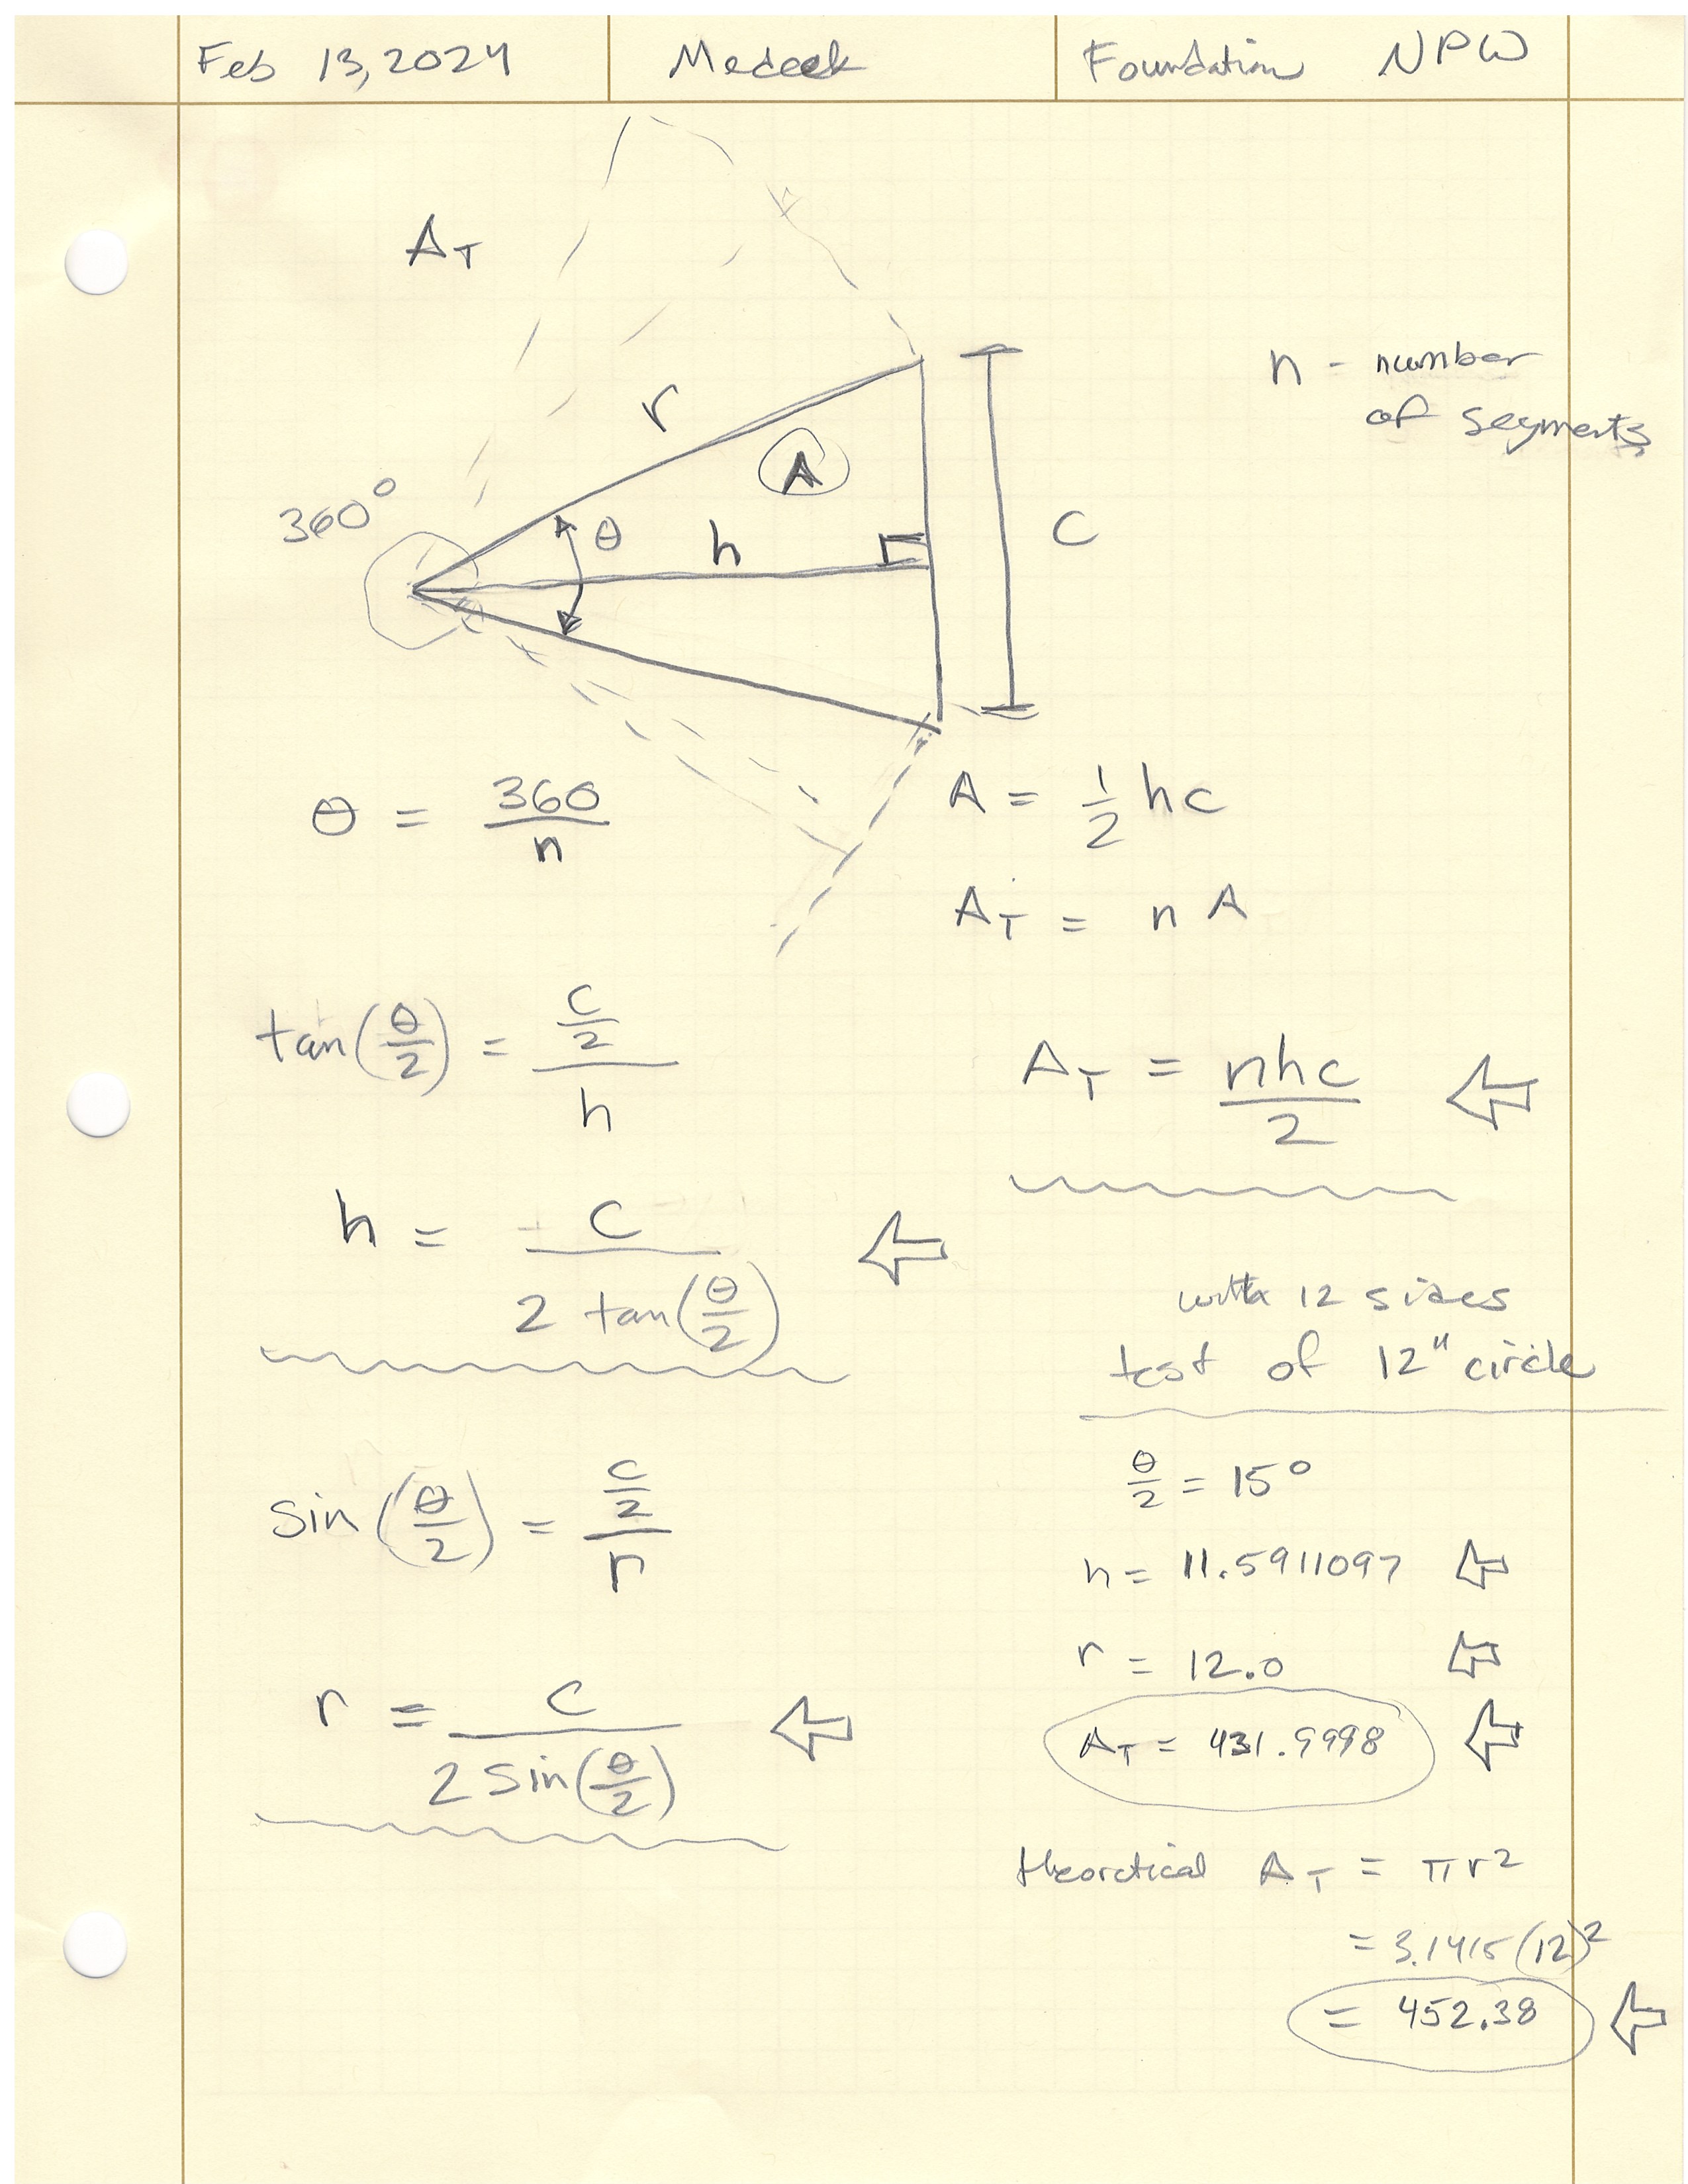 Feb 13, 2024 Medeek Foundation NPW
A_T
n - number
of segments
r
A
360°
θ
h
C
θ = 360/n
A = 1/2 hc
A_T = n A
tan(θ/2) = (c/2)/h
A_T = nhc/2
h = c/(2 tan(θ/2))
with 12 sides
test of 12" circle
sin(θ/2) = (c/2)/r
θ/2 = 15°
h = 11.5911097
r = 12.0
r = c/(2 sin(θ/2))
A_T = 431.9998
theoretical A_T = πr²
= 3.1415(12)²
= 452.38